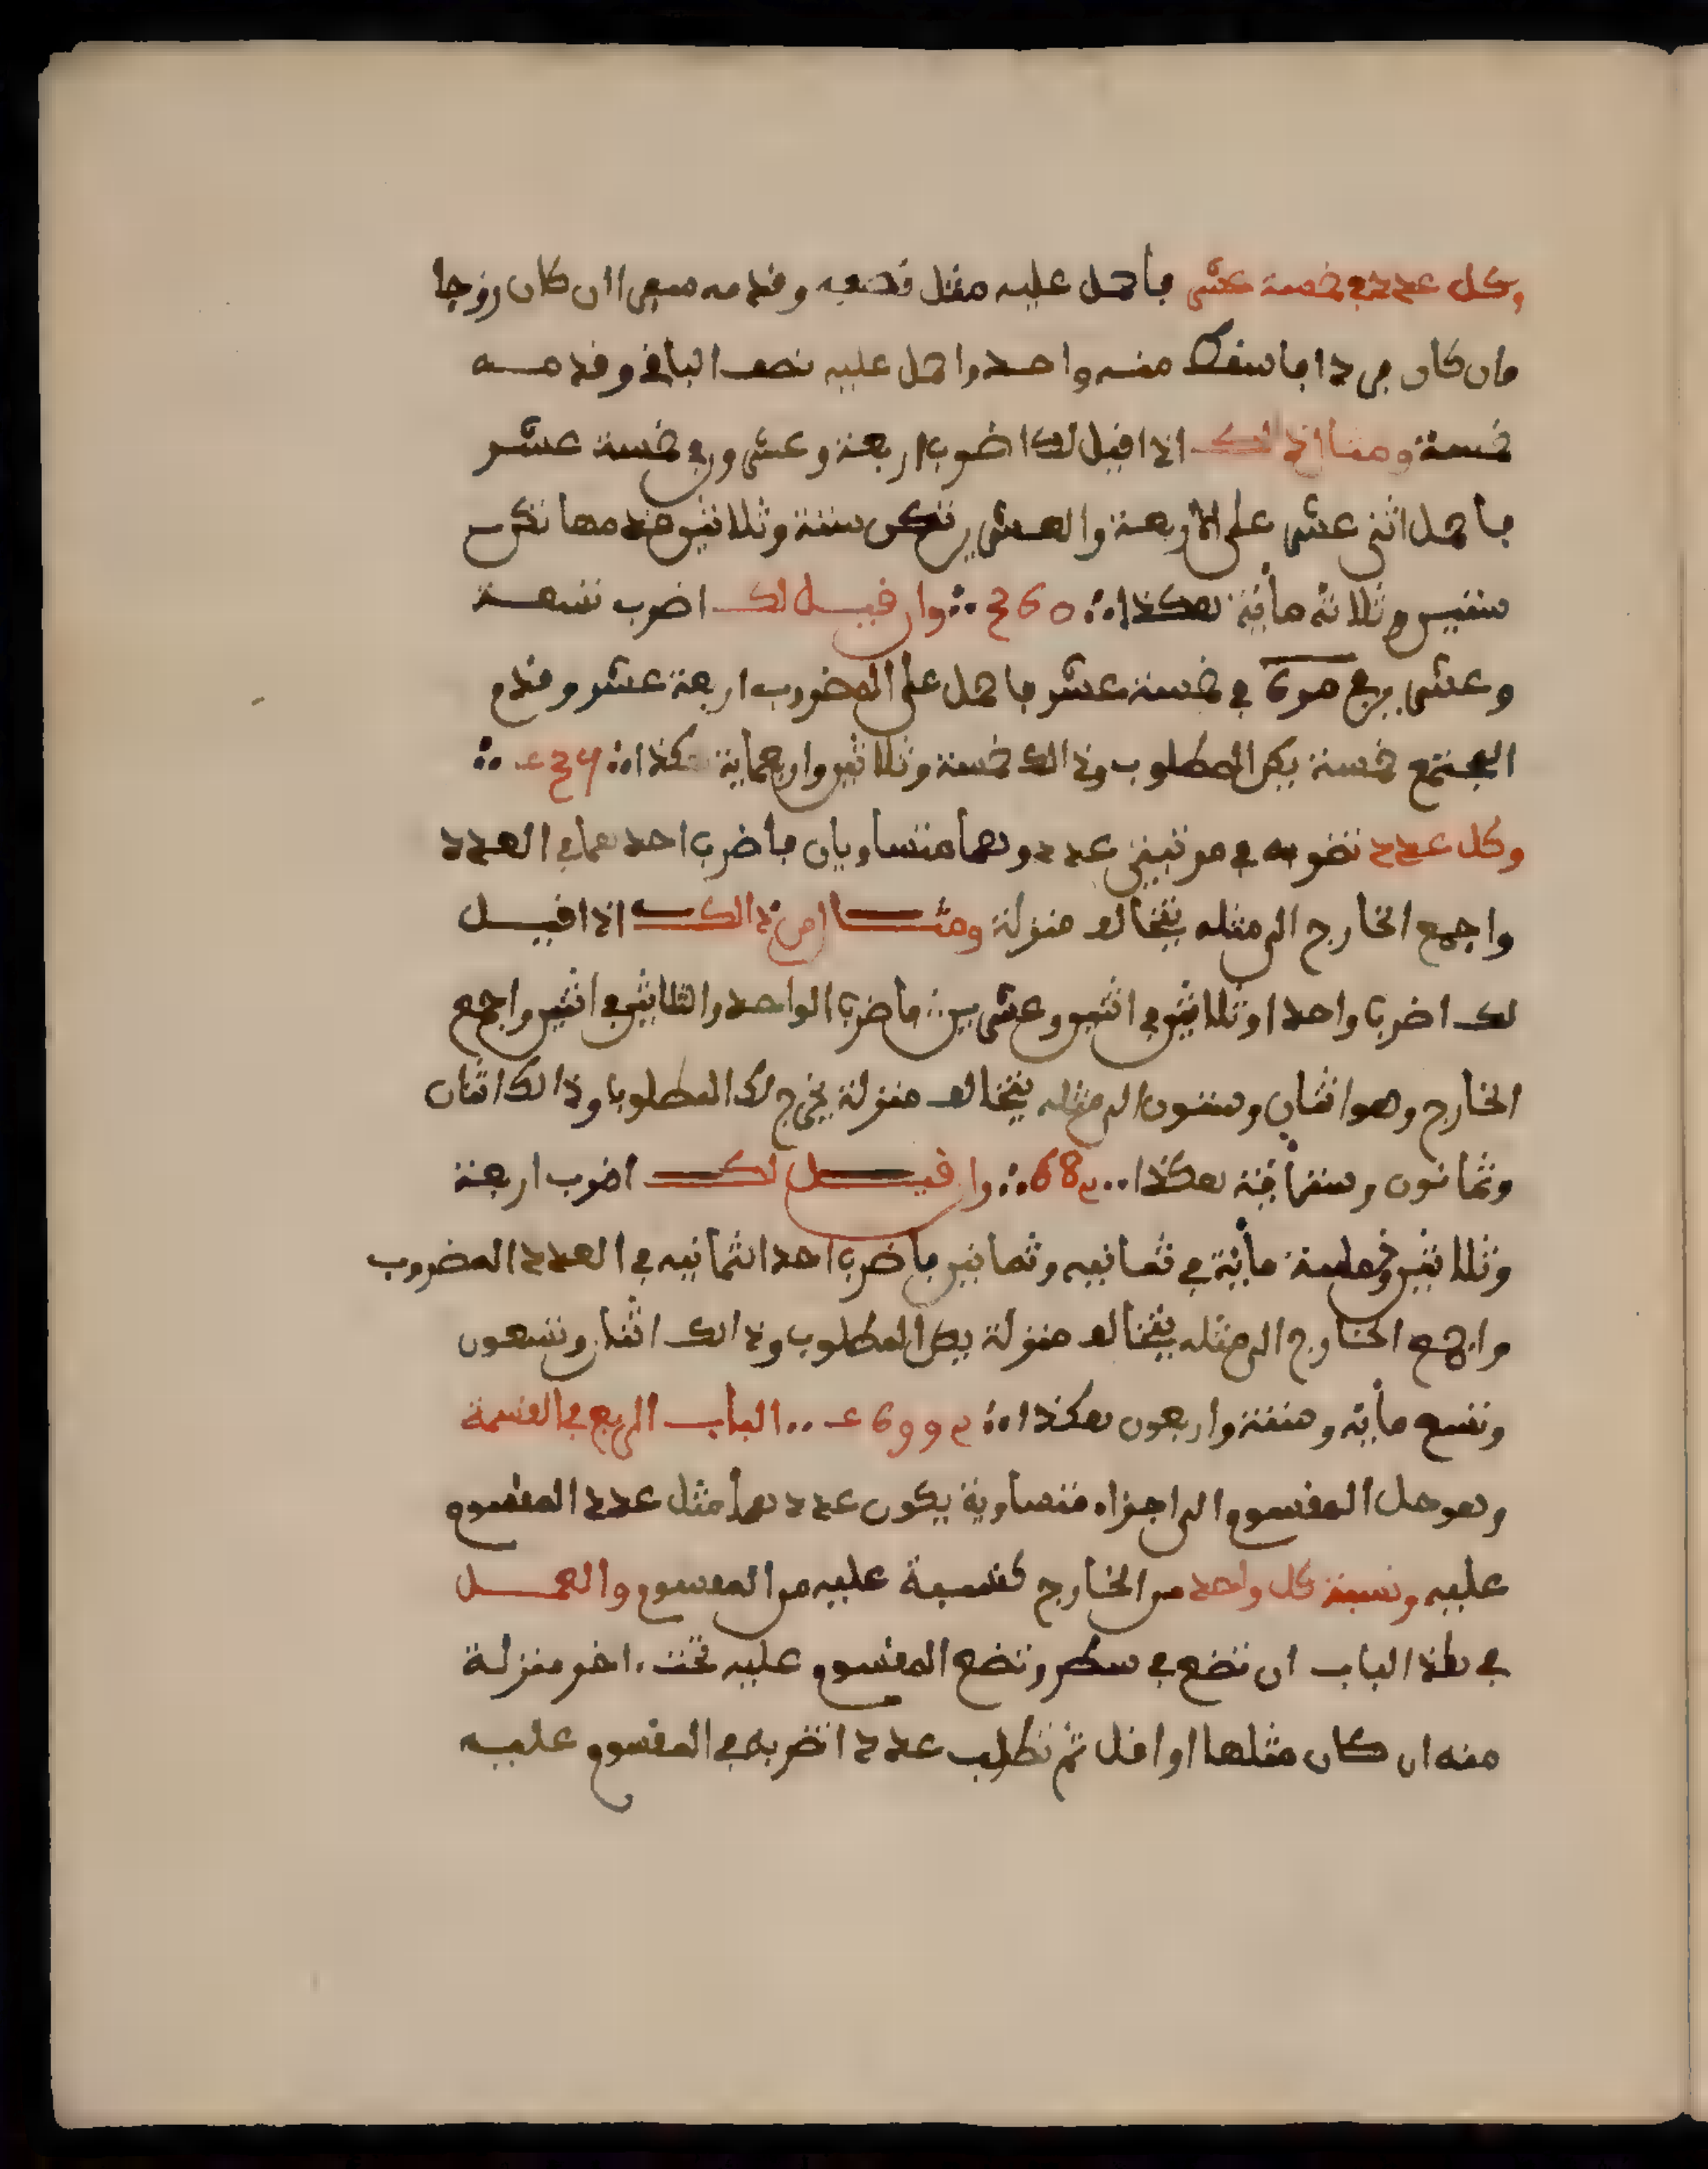 وكل عدد في خمسة عشر فاحمل عليه مثل نصفه وقدمه صفرا ان كان زوجا
وان كان فردا فاسقط منه واحدا واحمل عليه نصف الباقي وقدمه
خمسة ومثال ذلك اذا قيل لك اضرب اربعة وعشرين في خمسة عشر
فاحمل اثني عشر على الاربعة والعشرين تكن ستة وثلاثين قدمها تكن
ستين وثلاثة مائة هكذا 360 وان قيل لك اضرب تسعة
وعشرين في خمسة عشر فاحمل على المضروب اربعة عشر وقدم
المجتمع خمسة يكن المطلوب وذالك خمسة وثلاثين واربعماية هكذا 435
وكل عدد تضربه في مرتبتي عدد وهما متساويان فاضرب احدهما في العدد
واجمع الخارج الى مثله يتخالف منزلة ومثال من ذالك اذا قيل
لك اضرب واحدا وثلاثين في اثنين وعشرين فاضرب الواحد والثلاثين في اثنين واجمع
الخارج وهو اثنان وستون الى مثله يتخالف منزلة يخرج لك المطلوب وذالك اثنان
وثمانون وستمائة هكذا 682 وان قيل لك اضرب اربعة
وثلاثين وخمسة مائة في ثمانيه وثمانين فاضرب احد الثمانيه في العدد المضروب
واجمع الخارج الى مثله يتخالف منزلة يكن المطلوب وذالك اثنان وتسعون
وتسع مائة وستة واربعون هكذا 46992 الباب الربع في القسمة
وهو حل المقسوم الى اجزاء متساوية يكون عددها مثل عدد المقسوم
عليه ونسبة كل واحد من الخارج كنسبة عليه من المقسوم والعمل
في هذا الباب ان تضع في سطر وتضع المقسوم عليه تحت اخر منزلة
منه ان كان مثلها او اقل ثم تطلب عددا تضربه في المقسوم عليه